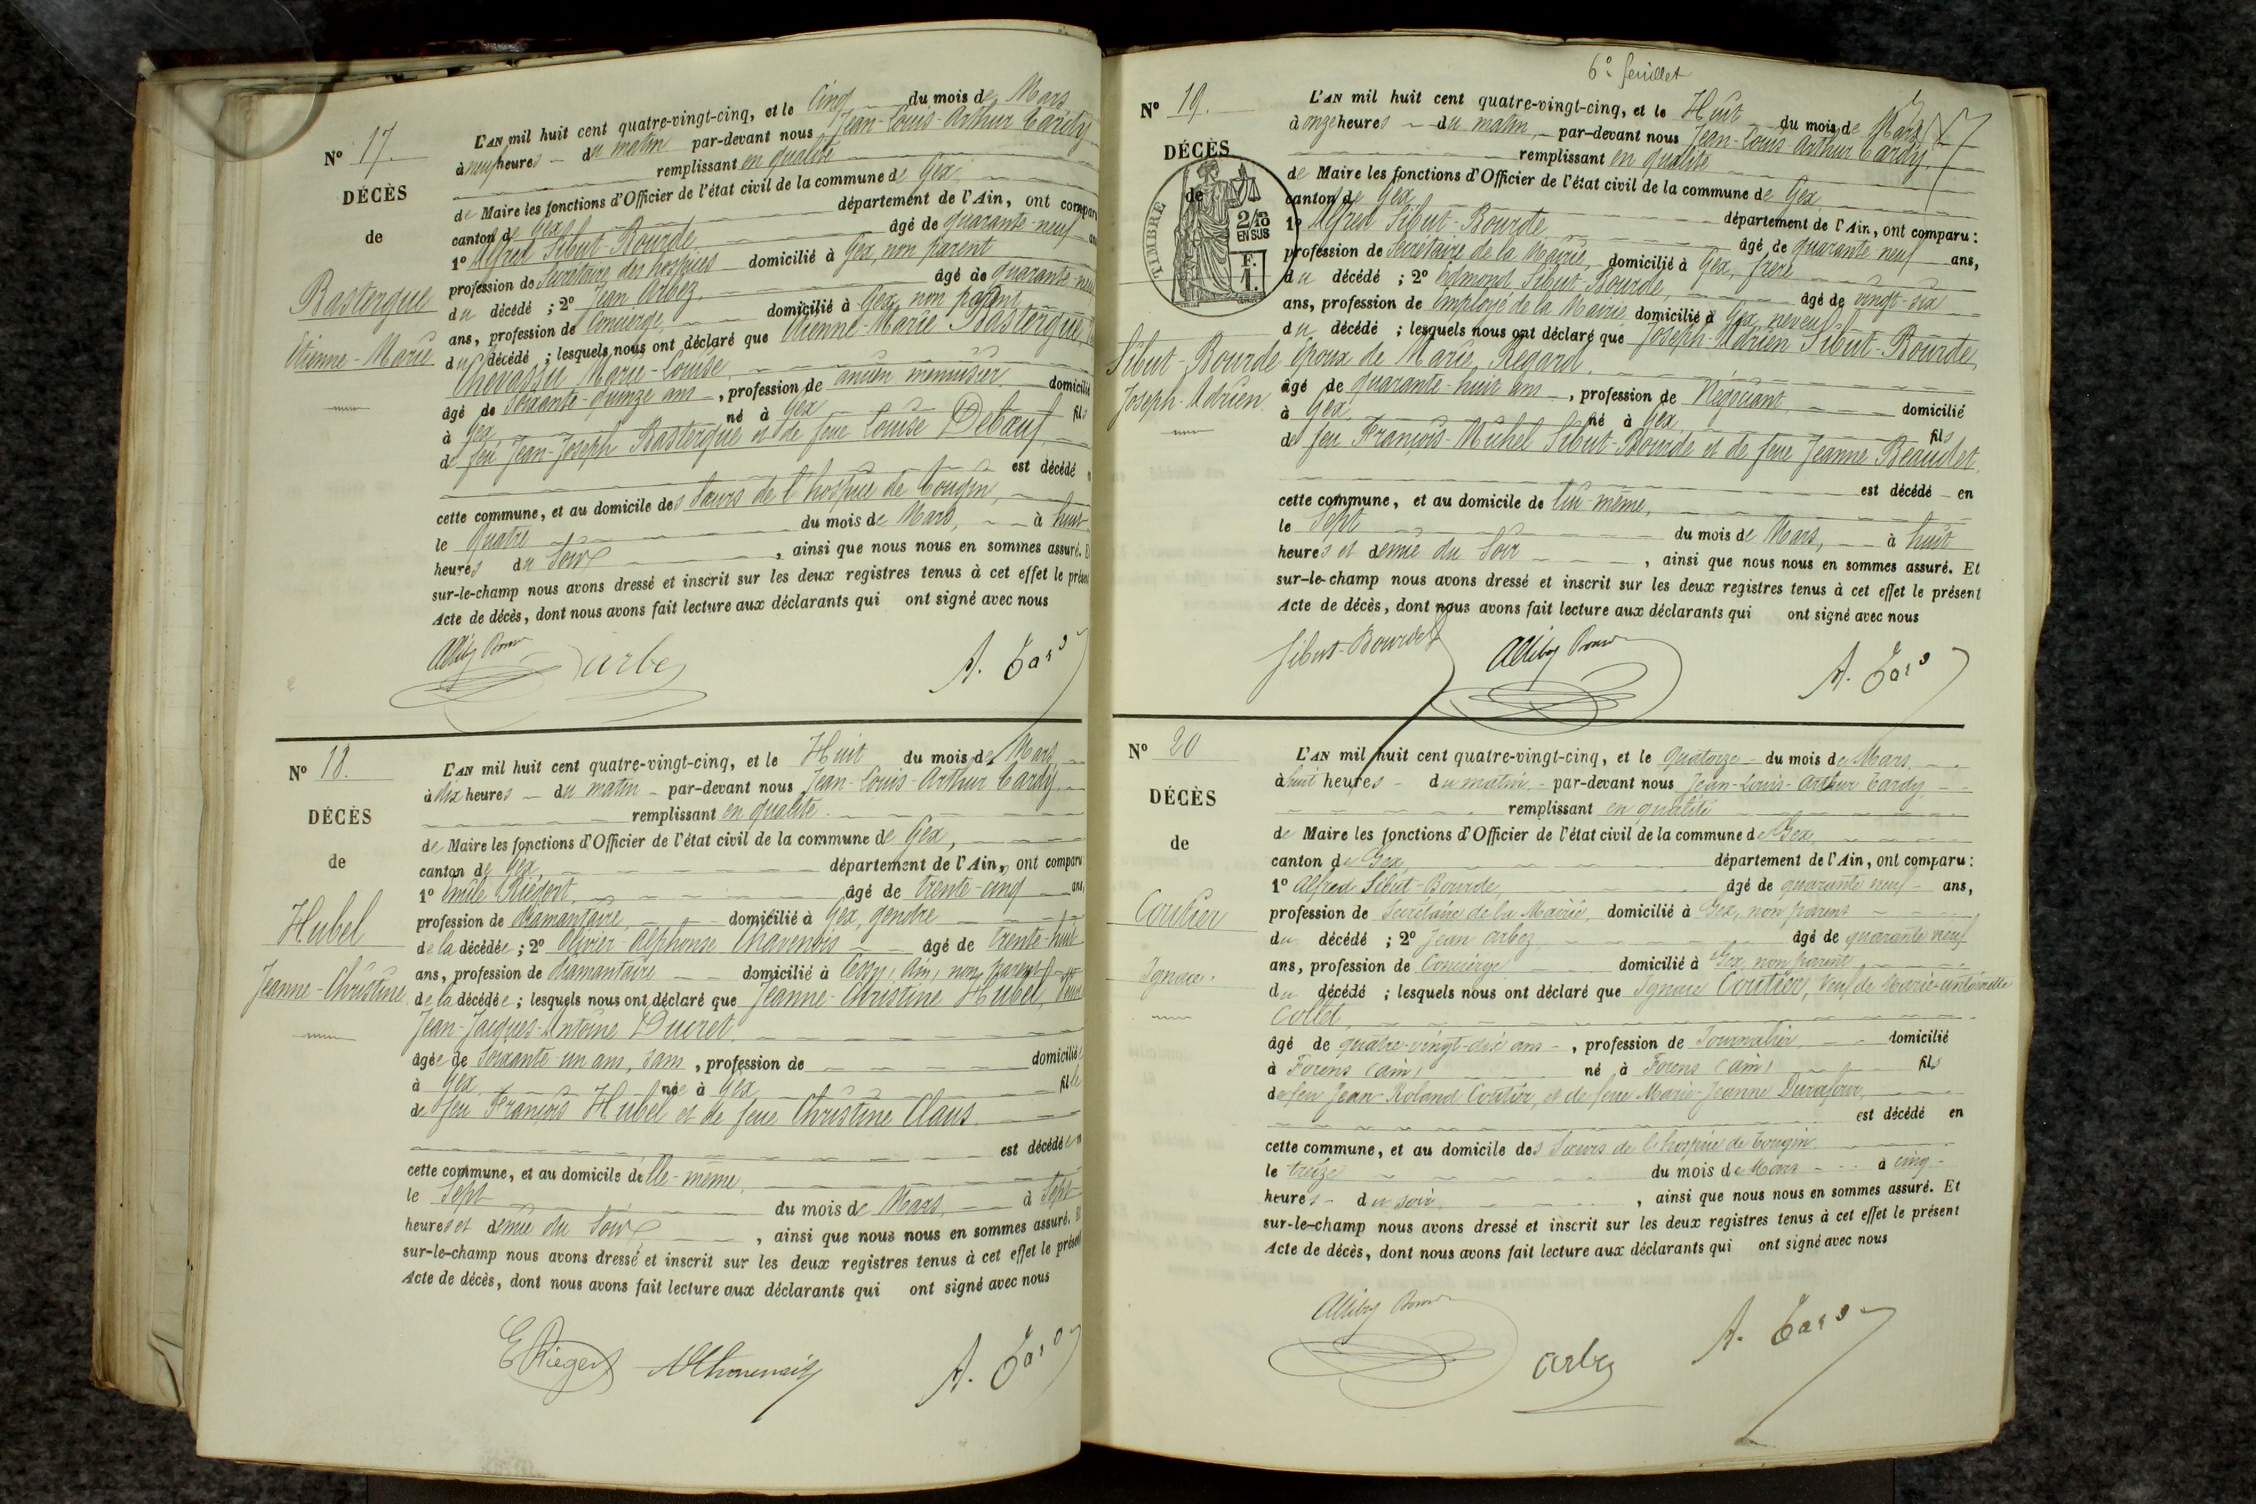 N° 17.
DÉCÈS
de
Bastergue
Etienne-Marie
L'AN mil huit cent quatre-vingt-cinq, et le Cinq du mois de Mars
à neuf heures du matin par-devant nous Jean-Louis-Arthur Tardy
remplissant en qualité
de Maire les fonctions d'Officier de l'état civil de la commune de Gex,
canton de Gex département de l'Ain, ont comparu
1° Alfred Sibut-Bourde âgé de quarante-neuf ans
profession de Secrétaire des hospices domicilié à Gex, non parent
du décédé ; 2° Jean Arbez âgé de quarante-neuf
ans, profession de Concierge, domicilié à Gex, non parent
du décédé ; lesquels nous ont déclaré que Etienne-Marie Bastergue,
Chevassu Marie-Louise,
âgé de soixante-quinze ans, profession de ancien menuisier domicilié
à Gex né à Gex fils
de feu Jean-Joseph Bastergue et de feue Louise Debœuf
est décédé
cette commune, et au domicile des Sœurs de l'hospice de Tougin,
le quatre du mois de Mars, à huit
heures du Soir , ainsi que nous nous en sommes assuré. Et
sur-le-champ nous avons dressé et inscrit sur les deux registres tenus à cet effet le présent
Acte de décès, dont nous avons fait lecture aux déclarants qui ont signé avec nous
Arbez
A. Tardy
N° 18.
DÉCÈS
de
Hubel
Jeanne-Christine
L'AN mil huit cent quatre-vingt-cinq, et le Huit du mois de Mars
à dix heures du matin par-devant nous Jean-Louis-Arthur Tardy
remplissant en qualité
de Maire les fonctions d'Officier de l'état civil de la commune de Gex,
canton de Gex, département de l'Ain, ont comparu
1° Emile Riegert, âgé de trente-cinq ans,
profession de diamantaire, domicilié à Gex, gendre
de la décédée ; 2° Olivier Alphonse Chavenois âgé de trente-huit
ans, profession de diamantaire domicilié à Cessy, Ain, non parent
de la décédée ; lesquels nous ont déclaré que Jeanne-Christine Hubel,
Jean-Jacques-Antoine Ducret
âgée de soixante-un ans, sans , profession de domiciliée
à Gex née à Gex fille
de feu François Hubel et de feue Christine Claus
est décédée en
cette commune, et au domicile d'elle-même,
le Sept du mois de Mars, à Sept
heures et demie du Soir , ainsi que nous nous en sommes assuré. Et
sur-le-champ nous avons dressé et inscrit sur les deux registres tenus à cet effet le présent
Acte de décès, dont nous avons fait lecture aux déclarants qui ont signé avec nous
E Riegert
A. Tardy
6e feuillet
N° 19.
DÉCÈS
de
TIMBRE
2/10
EN SUS
F.
1.
Sibut-Bourde
Joseph-Adrien
L'AN mil huit cent quatre-vingt-cinq, et le Huit du mois de Mars
à onze heures du matin, par-devant nous Jean-Louis Arthur Tardy,
remplissant en qualité
de Maire les fonctions d'Officier de l'état civil de la commune de Gex
canton de Gex, département de l'Ain, ont comparu :
1° Alfred Sibut-Bourde âgé de quarante neuf ans,
profession de Secrétaire de la Mairie, domicilié à Gex, frère
du décédé ; 2° Edmond Sibut-Bourde, âgé de vingt-six
ans, profession de Employé de la Mairie domicilié à Gex, neveu
du décédé ; lesquels nous ont déclaré que Joseph-Adrien Sibut-Bourde,
époux de Marie Regard,
âgé de quarante-huit ans , profession de Négociant domicilié
à Gex né à Gex, fils
de feu François-Michel Sibut-Bourde et de feue Jeanne Beaudet
est décédé en
cette commune, et au domicile de lui-même,
le Sept du mois de Mars, à huit
heures et demie du Soir , ainsi que nous nous en sommes assuré. Et
sur-le-champ nous avons dressé et inscrit sur les deux registres tenus à cet effet le présent
Acte de décès, dont nous avons fait lecture aux déclarants qui ont signé avec nous
Sibut-Bourde
A. Tardy
N° 20
DÉCÈS
de
Coutier
Ignace.
L'AN mil huit cent quatre-vingt-cinq, et le quatorze du mois de Mars
à huit heures du matin, par-devant nous Jean-Louis-Arthur Tardy
remplissant en qualité
de Maire les fonctions d'Officier de l'état civil de la commune de Gex
canton de Gex département de l'Ain, ont comparu :
1° Alfred Sibut-Bourde, âgé de quarante neuf ans,
profession de Secrétaire de la Mairie, domicilié à Gex, non parent
du décédé ; 2° Jean Arbez âgé de quarante neuf
ans, profession de Concierge domicilié à Gex, non parent
du décédé ; lesquels nous ont déclaré que Ignace Coutier, Veuf de Marie-Antoinette
Collet,
âgé de quatre-vingt-dix ans , profession de Journalier domicilié
à Forens (Ain) né à Forens (Ain) fils
de feu Jean-Roland Coutier, et de feue Marie-Jeanne Durafour,
est décédé en
cette commune, et au domicile des Sœurs de l'hospice de Tougin
le treize du mois de Mars à cinq
heures du soir , ainsi que nous nous en sommes assuré. Et
sur-le-champ nous avons dressé et inscrit sur les deux registres tenus à cet effet le présent
Acte de décès, dont nous avons fait lecture aux déclarants qui ont signé avec nous
Arbez
A. Tardy